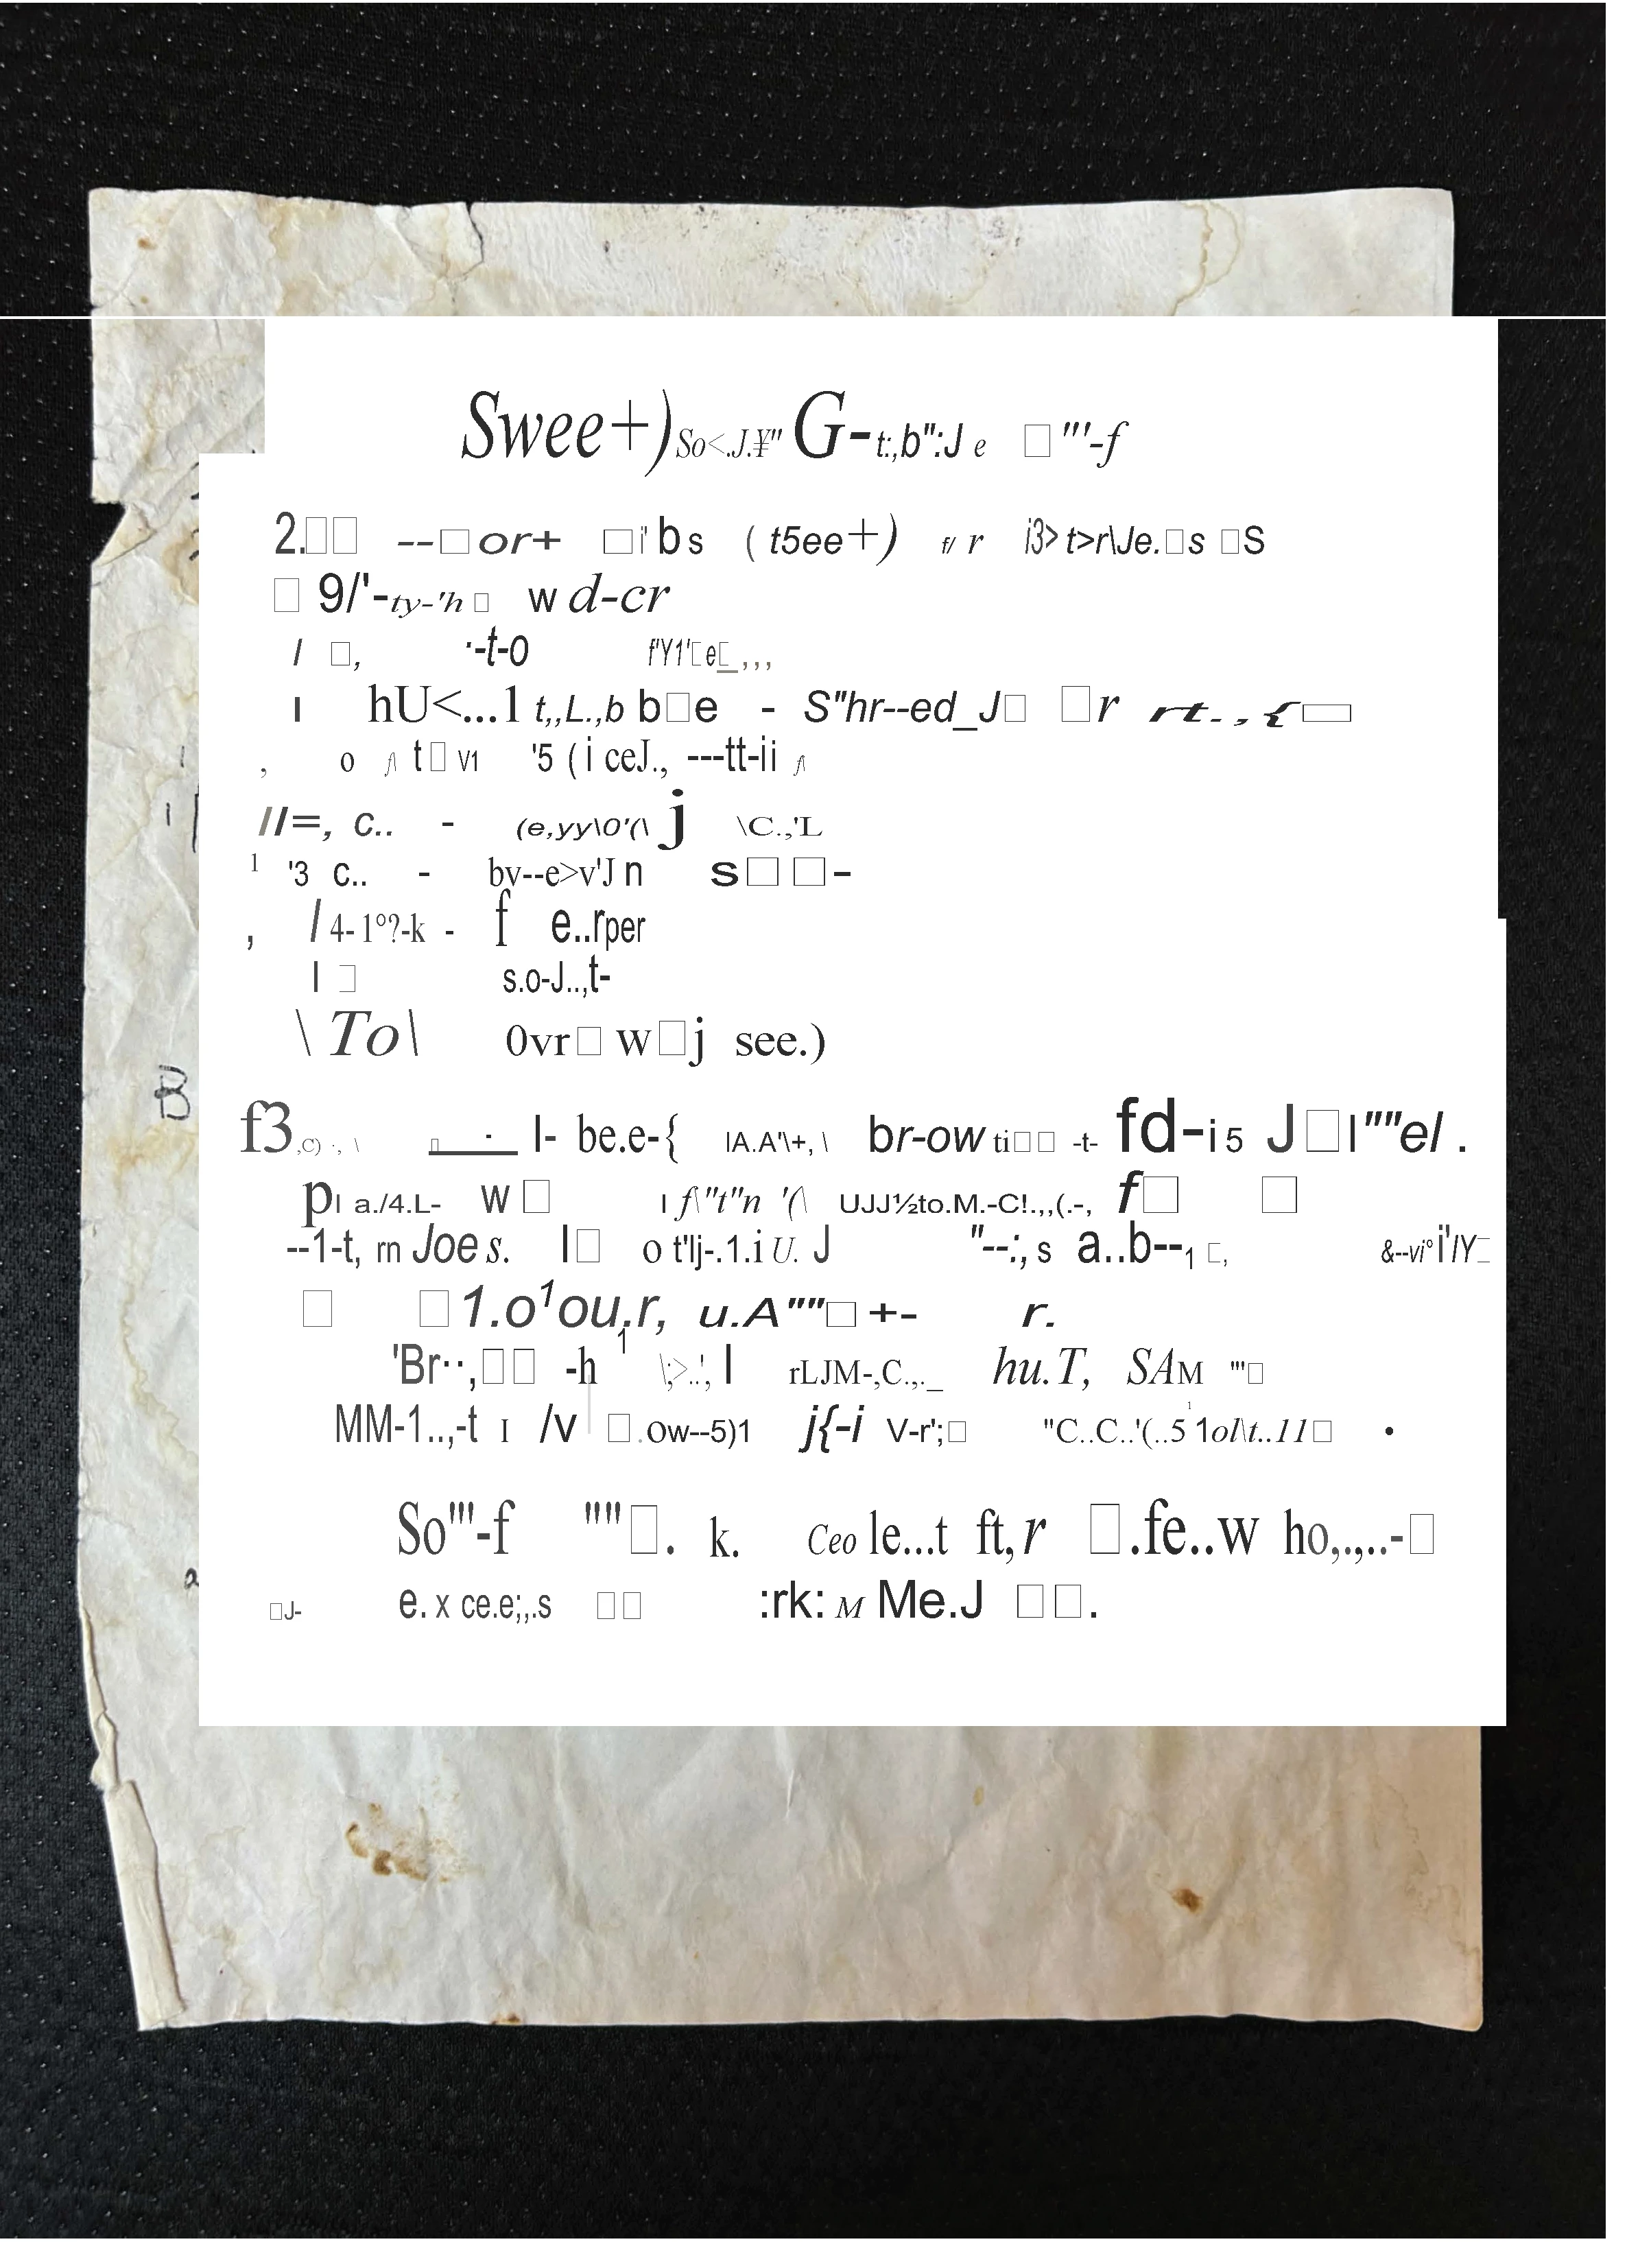 Swee+) So<.J.¥" G-t:,b":J e □"'-f
2.□□ --□or+ □i'bs ( t5ee+) f/ r i3>t>r\Je.□s □S
□ 9/'-ty-'h□ w d-cr
/ □, ·-t-o f'Y1'□e□,,,
I hU<...1 t,,L.,b b□e - S"hr--ed_J□ □r rt.,{□
, o /\ t□V1 '5 (i ceJ., ---tt-ii /\
//=, c.. - (e,yy\0'(\ j \C.,'L
1 '3 c.. - bv--e>v'Jn s□□-
, /4-1°?-k - f e..rper
I □ s.o-J..,t-
\To\ 0vr□ w□j see.)
f3,C) ·, \ □ . l- be.e-{ lA.A'\+,\ br-ow ti□□ -t- fd-i5 J□l""el .
B
pl a./4.L- w□ I f\"t"n '(\ UJJ½to.M.-C!.,,(.-, f□ □
--1-t, rn Joe s. l□ o t'lj-.1.i U. J "--:, s a..b--1 □, &--vi°i'/Y□
□ □1.o1ou.r, u.A""□+- r.
'Br··,□□ -h 1 \;>..', l rLJM-,C.,._ hu.T, SAM "'□
MM-1..,-t I /v □.ow--5)1 j{-i V-r';□ "C..C..'(..5 1 1ol\t..11□ •
So'"-f ""□. k. Ceo le...t ft,r □.fe..w ho,.,..-□
a
□J- e. x ce.e;,.s □□ :rk: M Me.J □□.